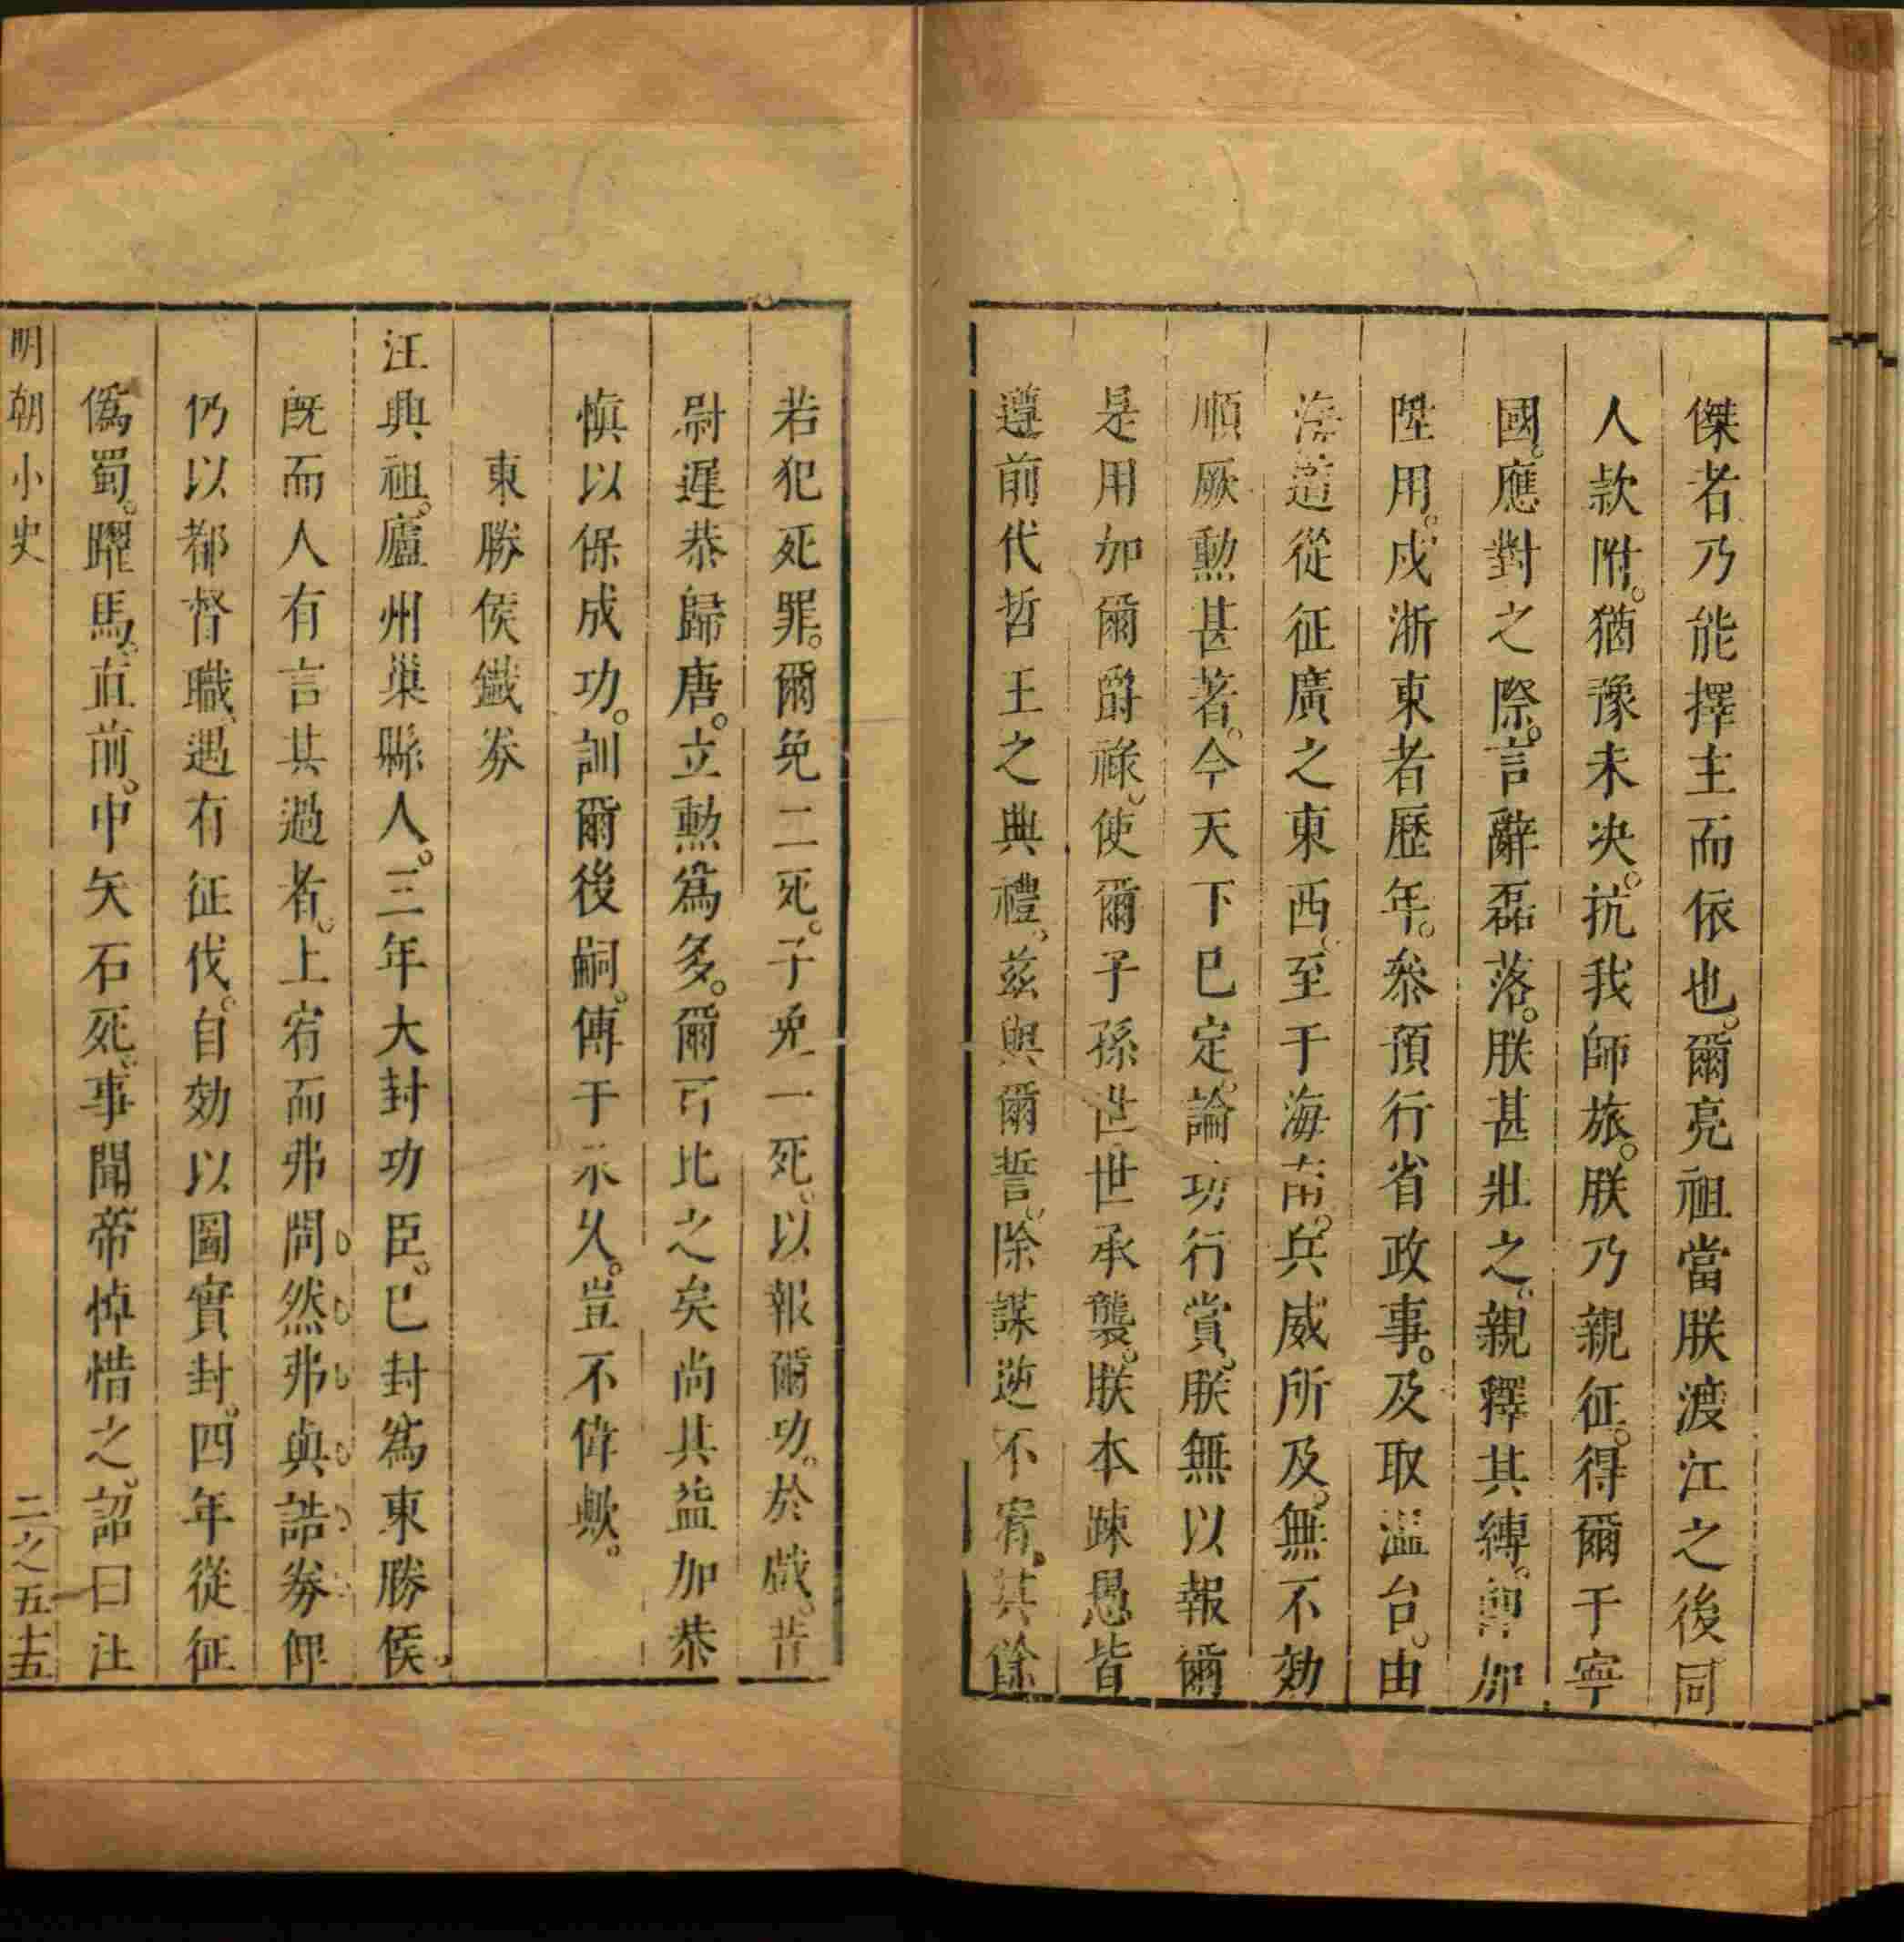 傑者乃能擇主而依也。爾亮祖當朕渡江之後同
人款附。猶豫未决。抗我師旅。朕乃親征。得爾于寧
國。應對之際。言辭磊落。朕甚壯之。親釋其縛。加
陞用。戍浙東者歷年。叅預行省政事。及取温台。由
海道從征廣之東西。至于海南。兵威所及。無不效
順厥勲甚著。今天下已定。論功行賞。朕無以報爾
是用加爾爵祿。使爾子孫世世承襲。朕本疎愚皆
遵前代哲王之典禮。兹與爾誓。除謀逆不宥。其餘
若犯死罪。爾免二死。子免一死。以報爾功。於戲。昔
尉遲恭歸唐。立勲爲多。爾可比之矣尚其益加恭
慎以保成功。訓爾後嗣。傳于永久。豈不偉歟。
東勝侯鐵券
汪興祖。廬州巢縣人。三年大封功臣。已封爲東勝侯。
旣而人有言其過者。上宥而弗問然弗與誥券俾
仍以都督職。遇有征伐。自効以圖實封。四年從征
僞蜀。躍馬。直前。中矢石死。事聞帝悼惜之。詔曰汪
明朝小史
二之五十五